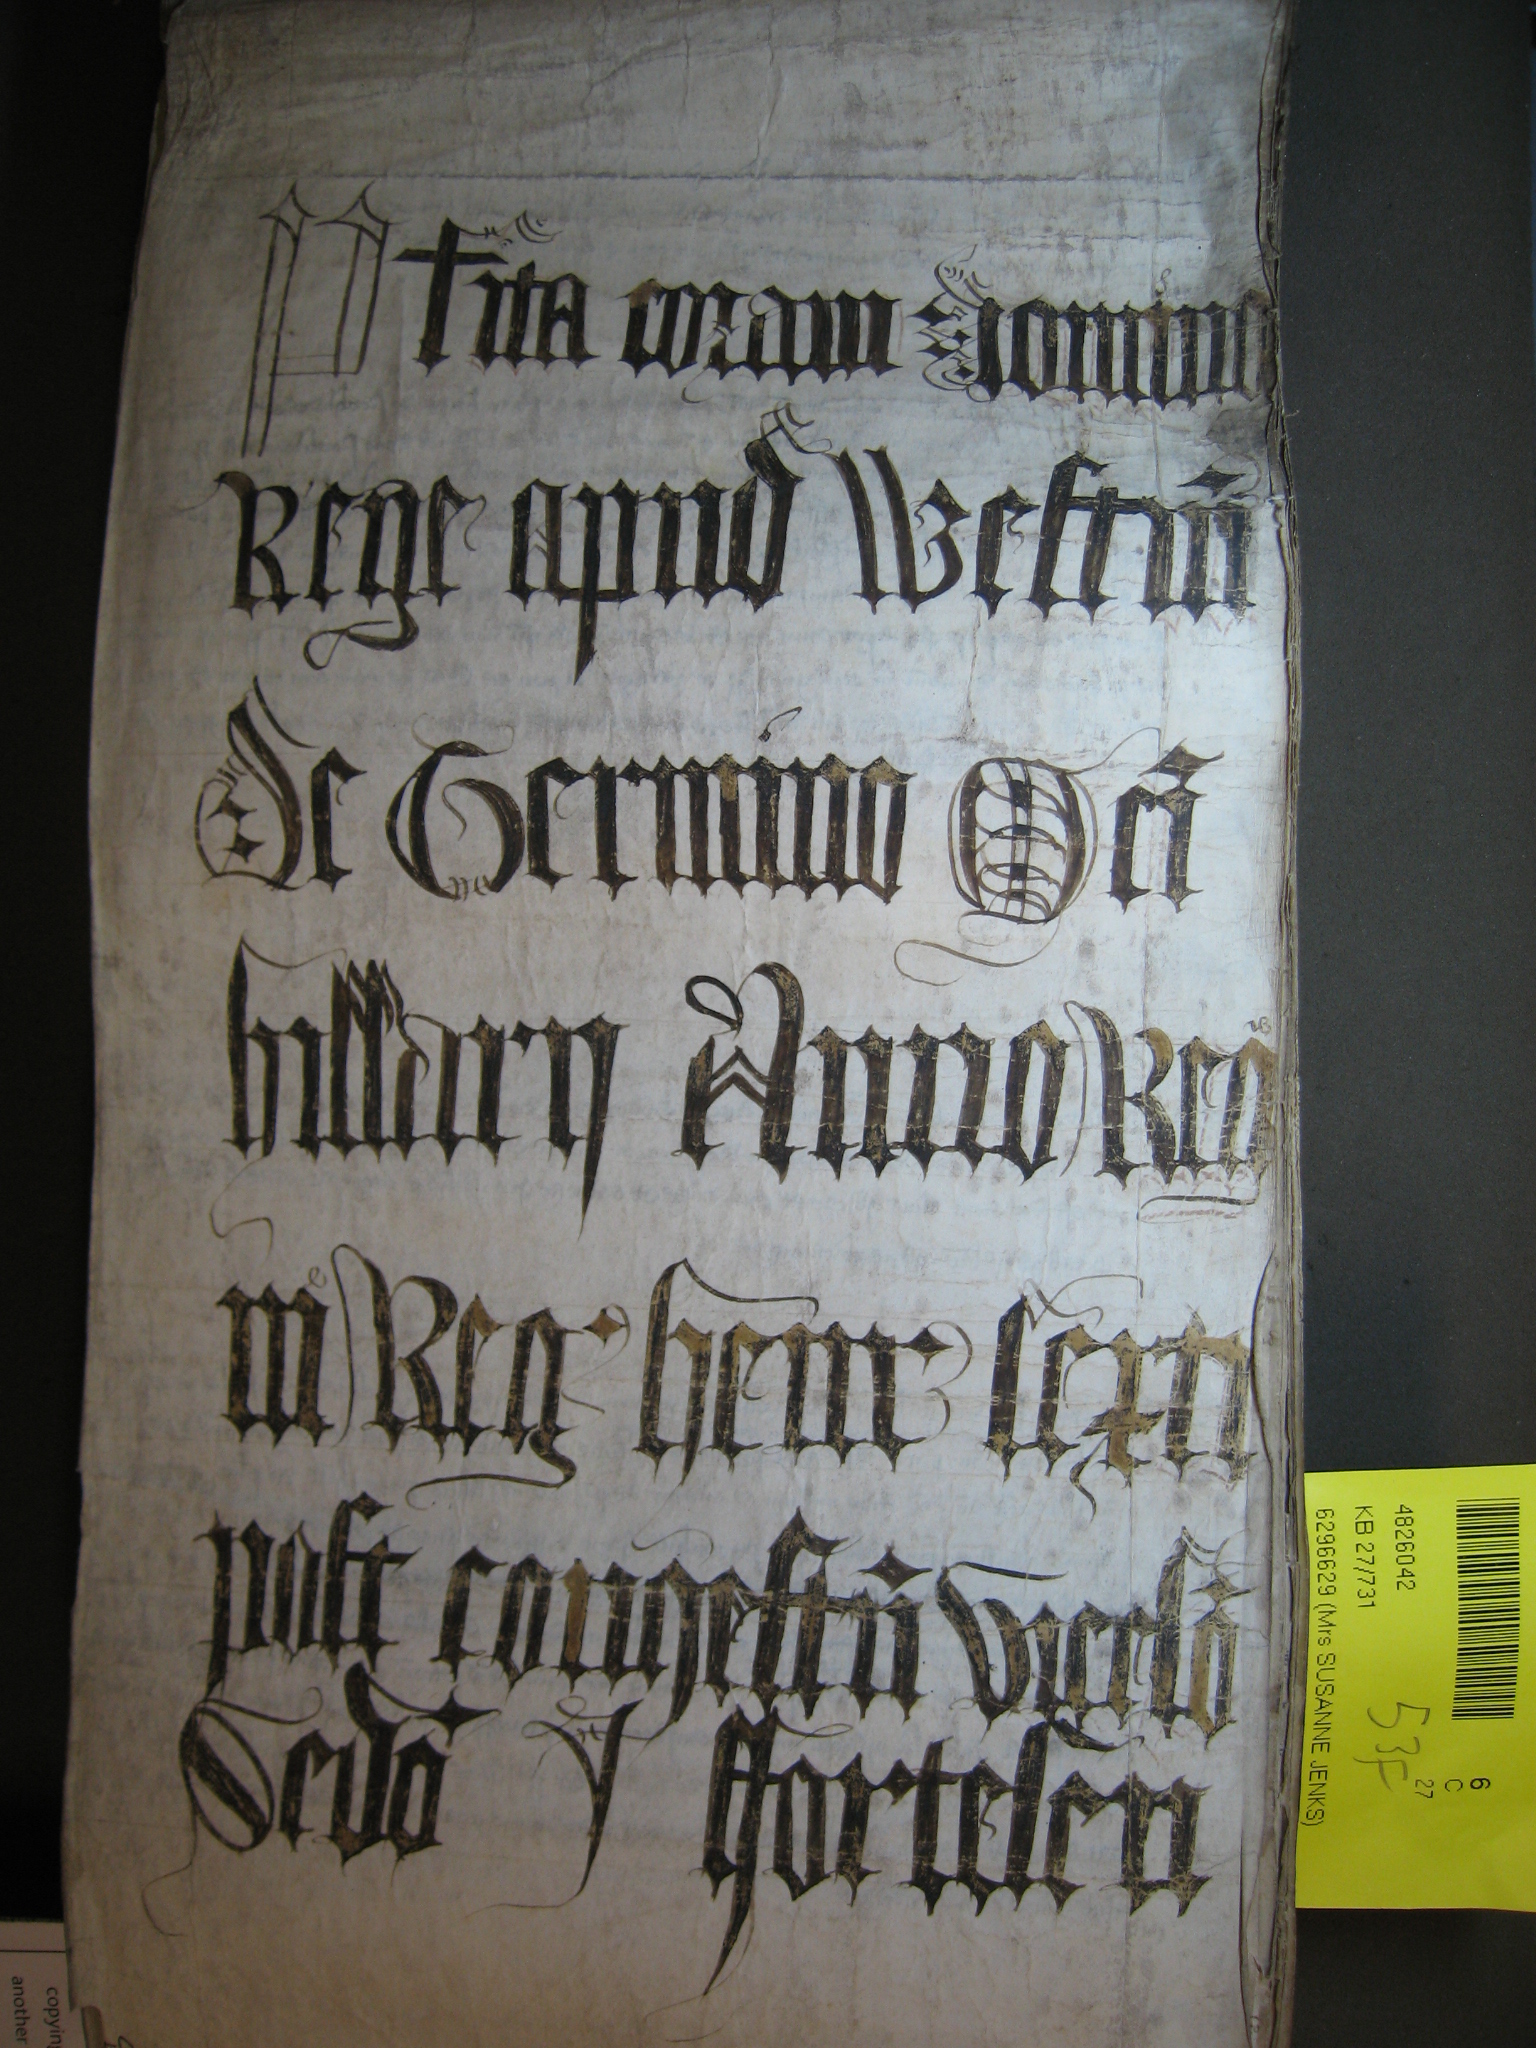 Pl͞ita coram Domino
Rege apud Westm̄
De Termino Oct̄
hillarij Anno Reg
ni Reg' henr' sexti
post conquestū vicesīo
Sc̄do J ffortescu
4826042
KB 27/731
6296629 (Mrs SUSANNE JENKS)
6
C
27
53F
copyin
another